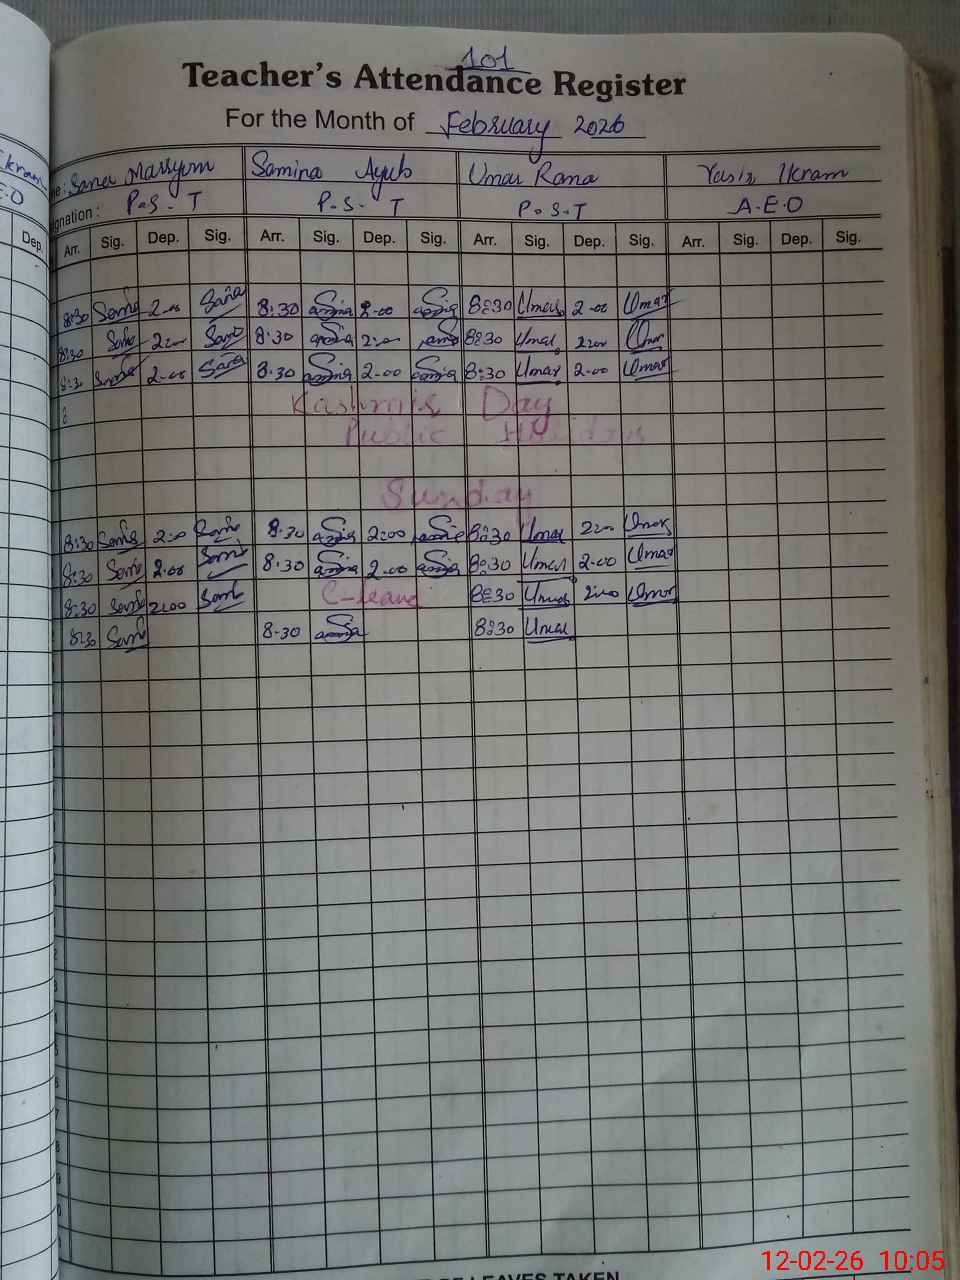 101
Teacher's Attendance Register
For the Month of February 2026
Sana Marryum Samina Ayub Umar Rana Yasir Ikram
gnation : P.S.T P.S.T P.S.T A.E.O
Dep. Arr. Sig. Dep. Sig. Arr. Sig. Dep. Sig. Arr. Sig. Dep. Sig. Arr. Sig. Dep. Sig.
8:30 Sana 2-00 Sana 8:30 Samina 2-00 Samina 8:30 Umar 2-00 Umar
8:30 Sana 2:00 Sana 8:30 Samina 2:00 Samina 8:30 Umar 2:00 Umar
8:30 Sana 2-00 Sana 8.30 Samina 2-00 Samina 8:30 Umar 2-00 Umar
Kashmir Day
Public Holiday
Sunday
8:30 Sana 2:00 Sana 8:30 Samina 2:00 Samina 8:30 Umar 2:00 Umar
8:30 Sana 2:00 Sana 8:30 Samina 2-00 Samina 8:30 Umar 2-00 Umar
8:30 Sana 2:00 Sana C-leave 8:30 Umar 2:00 Umar
8:30 Sana 8-30 Samina 8:30 Umar
LEAVES TAKEN
12-02-26 10:05